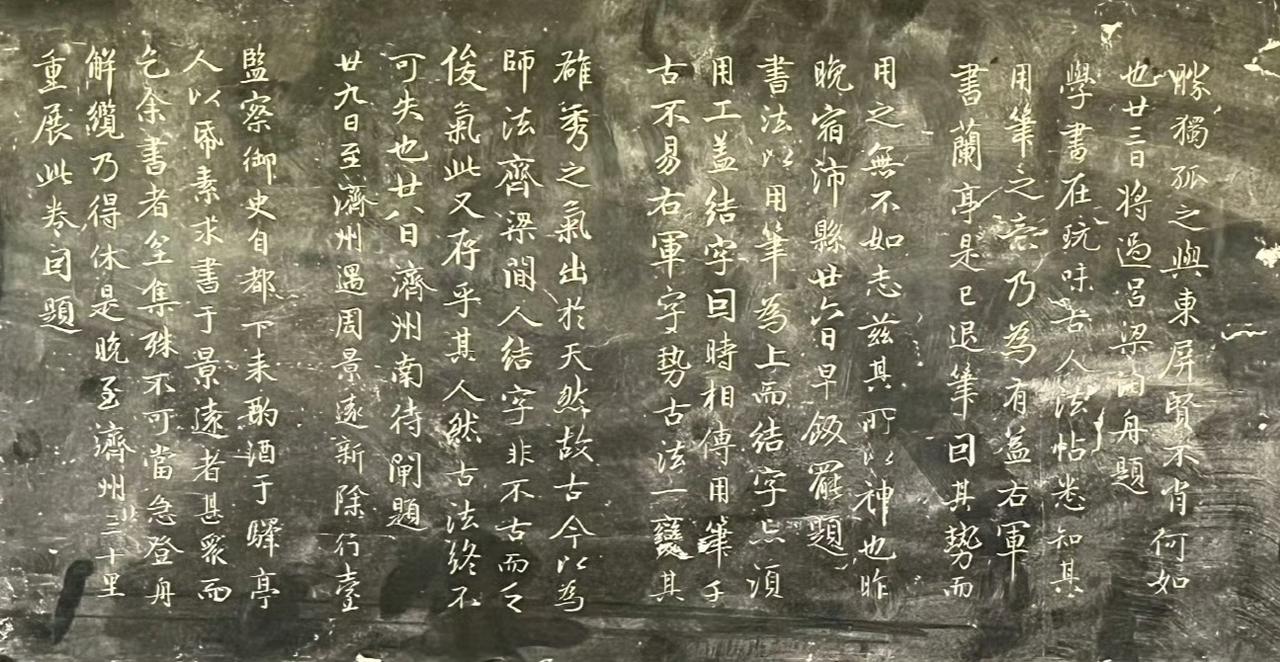 勝獨孤之與東屏賢不肖何如
也廿三日將過呂梁泊舟題
學書在玩味古人法帖悉知其
用筆之意乃為有益右軍
書蘭亭是已退筆因其勢而
用之無不如志茲其所以神也昨
晚宿沛縣廿六日早飯罷題
書法以用筆為上而結字亦須
用工蓋結字因時相傳用筆千
古不易右軍字勢古法一變其
雄秀之氣出於天然故古今以為
師法齊梁間人結字非不古而乏
俊氣此又存乎其人然古法終不
可失也廿八日濟州南待閘題
廿九日至濟州遇周景遠新除行臺
監察御史自都下來酌酒于驛亭
人以帋素求書于景遠者甚衆而
乞余書者坌集殊不可當急登舟
解纜乃得休是晚至濟州三十里
重展此卷因題